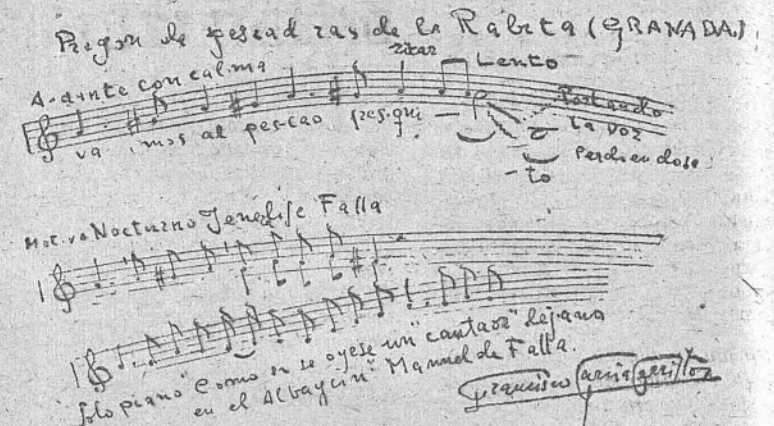 Pregon de pescadoras de la Rábita (GRANADA)
Andante con calma
ritar Lento
va mos al pescao fres-qui - to
Portando
la voz
Perdiendose
Motivo Nocturno Jeneralife Falla
Solo piano "como si se oyese un "cantaor" lejano
en el Albaycin" Manuel de Falla.
Francisco García